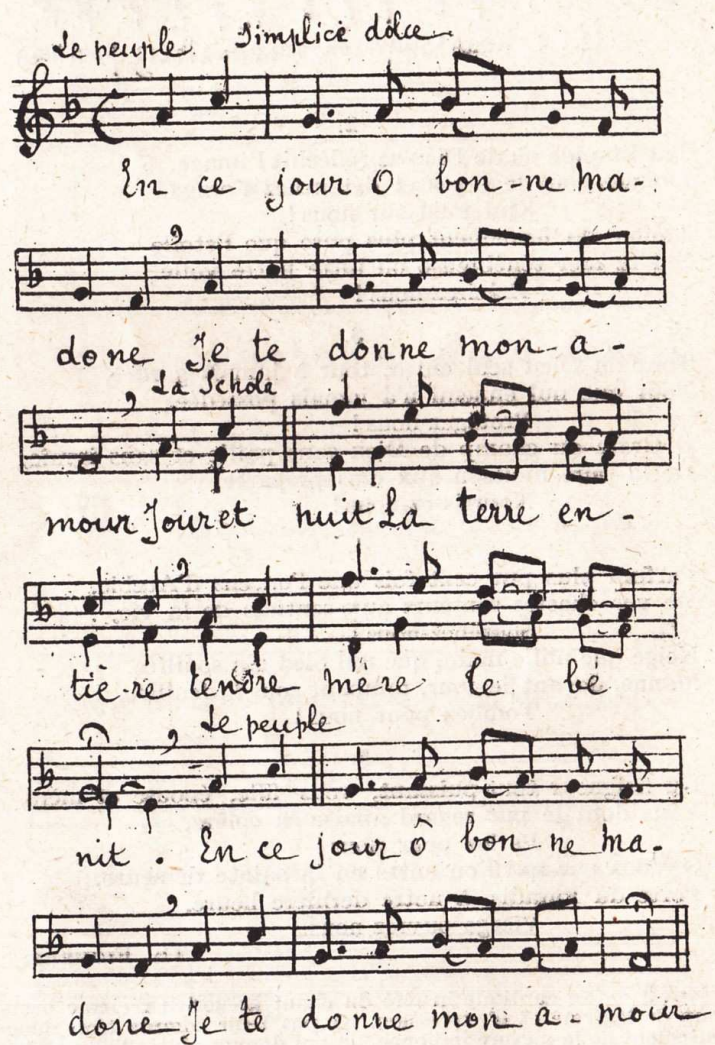 Le peuple Simplice dolce
En ce jour O bon-ne Ma-
done Je te donne mon-a-
La Schola
mour Jour et nuit La terre en-
tie-re tendre mere te be
Le peuple
nit. En ce jour ô bon ne ma-
done Je te donne mon a-mour